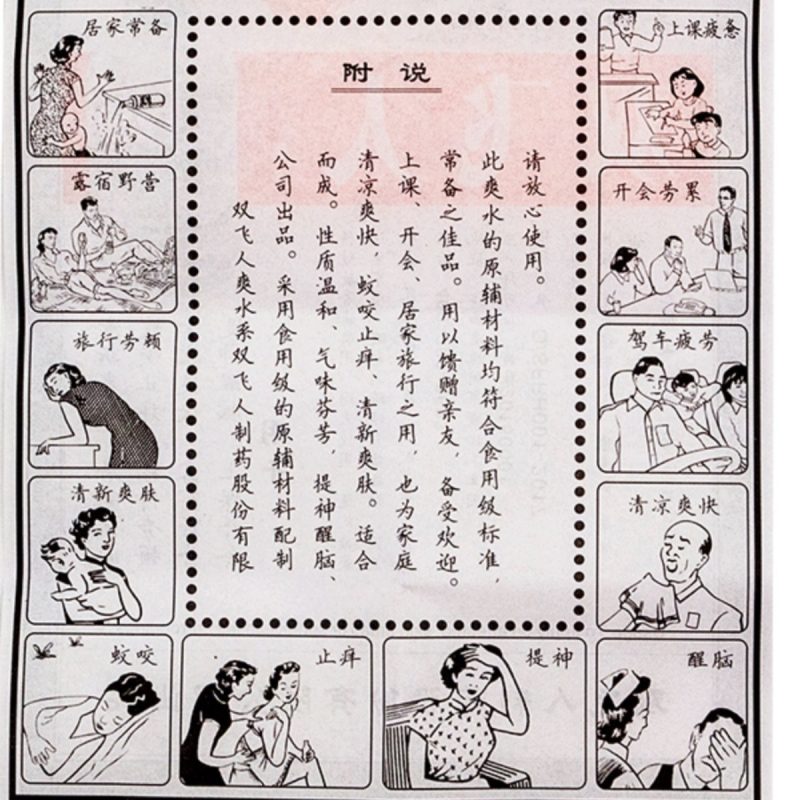 附说
双飞人爽水系双飞人制药股份有限
公司出品。采用食用级的原辅材料配制
而成。性质温和、气味芬芳，提神醒脑、
清凉爽快，蚊咬止痒、清新爽肤。适合
上课、开会、居家旅行之用，也为家庭
常备之佳品。用以馈赠亲友，备受欢迎。
此爽水的原辅材料均符合食用级标准，
请放心使用。
居家常备
露宿野营
旅行劳顿
清新爽肤
蚊咬
止痒
提神
醒脑
上课疲惫
开会劳累
驾车疲劳
清凉爽快